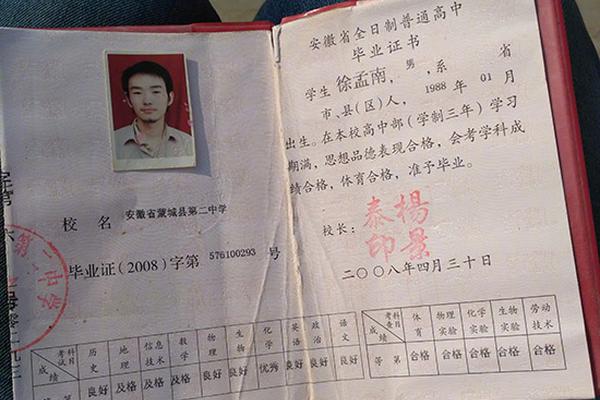 安徽省全日制普通高中
毕业证书
学生 徐孟南，男，系 省
市、县（区）人，1988年01月
出生。在本校高中部（学制三年）学习
期满，思想品德表现合格，会考学科成
绩合格，体育合格，准予毕业。
校长：
楊景泰印
二〇〇八年四月三十日
校名 安徽省蒙城县第二中学
毕业证（2008）字第 576100293 号
第二中学
考试科目 历史 地理 信息技术 数学 物理 生物 化学 英语 政治 语文
成绩 良好 及格 及格 及格 良好 良好 优秀 良好 良好 良好
考查科目 体育 物理实验 化学实验 生物实验 劳动技术
成绩
等第 合格 合格 合格 合格 合格